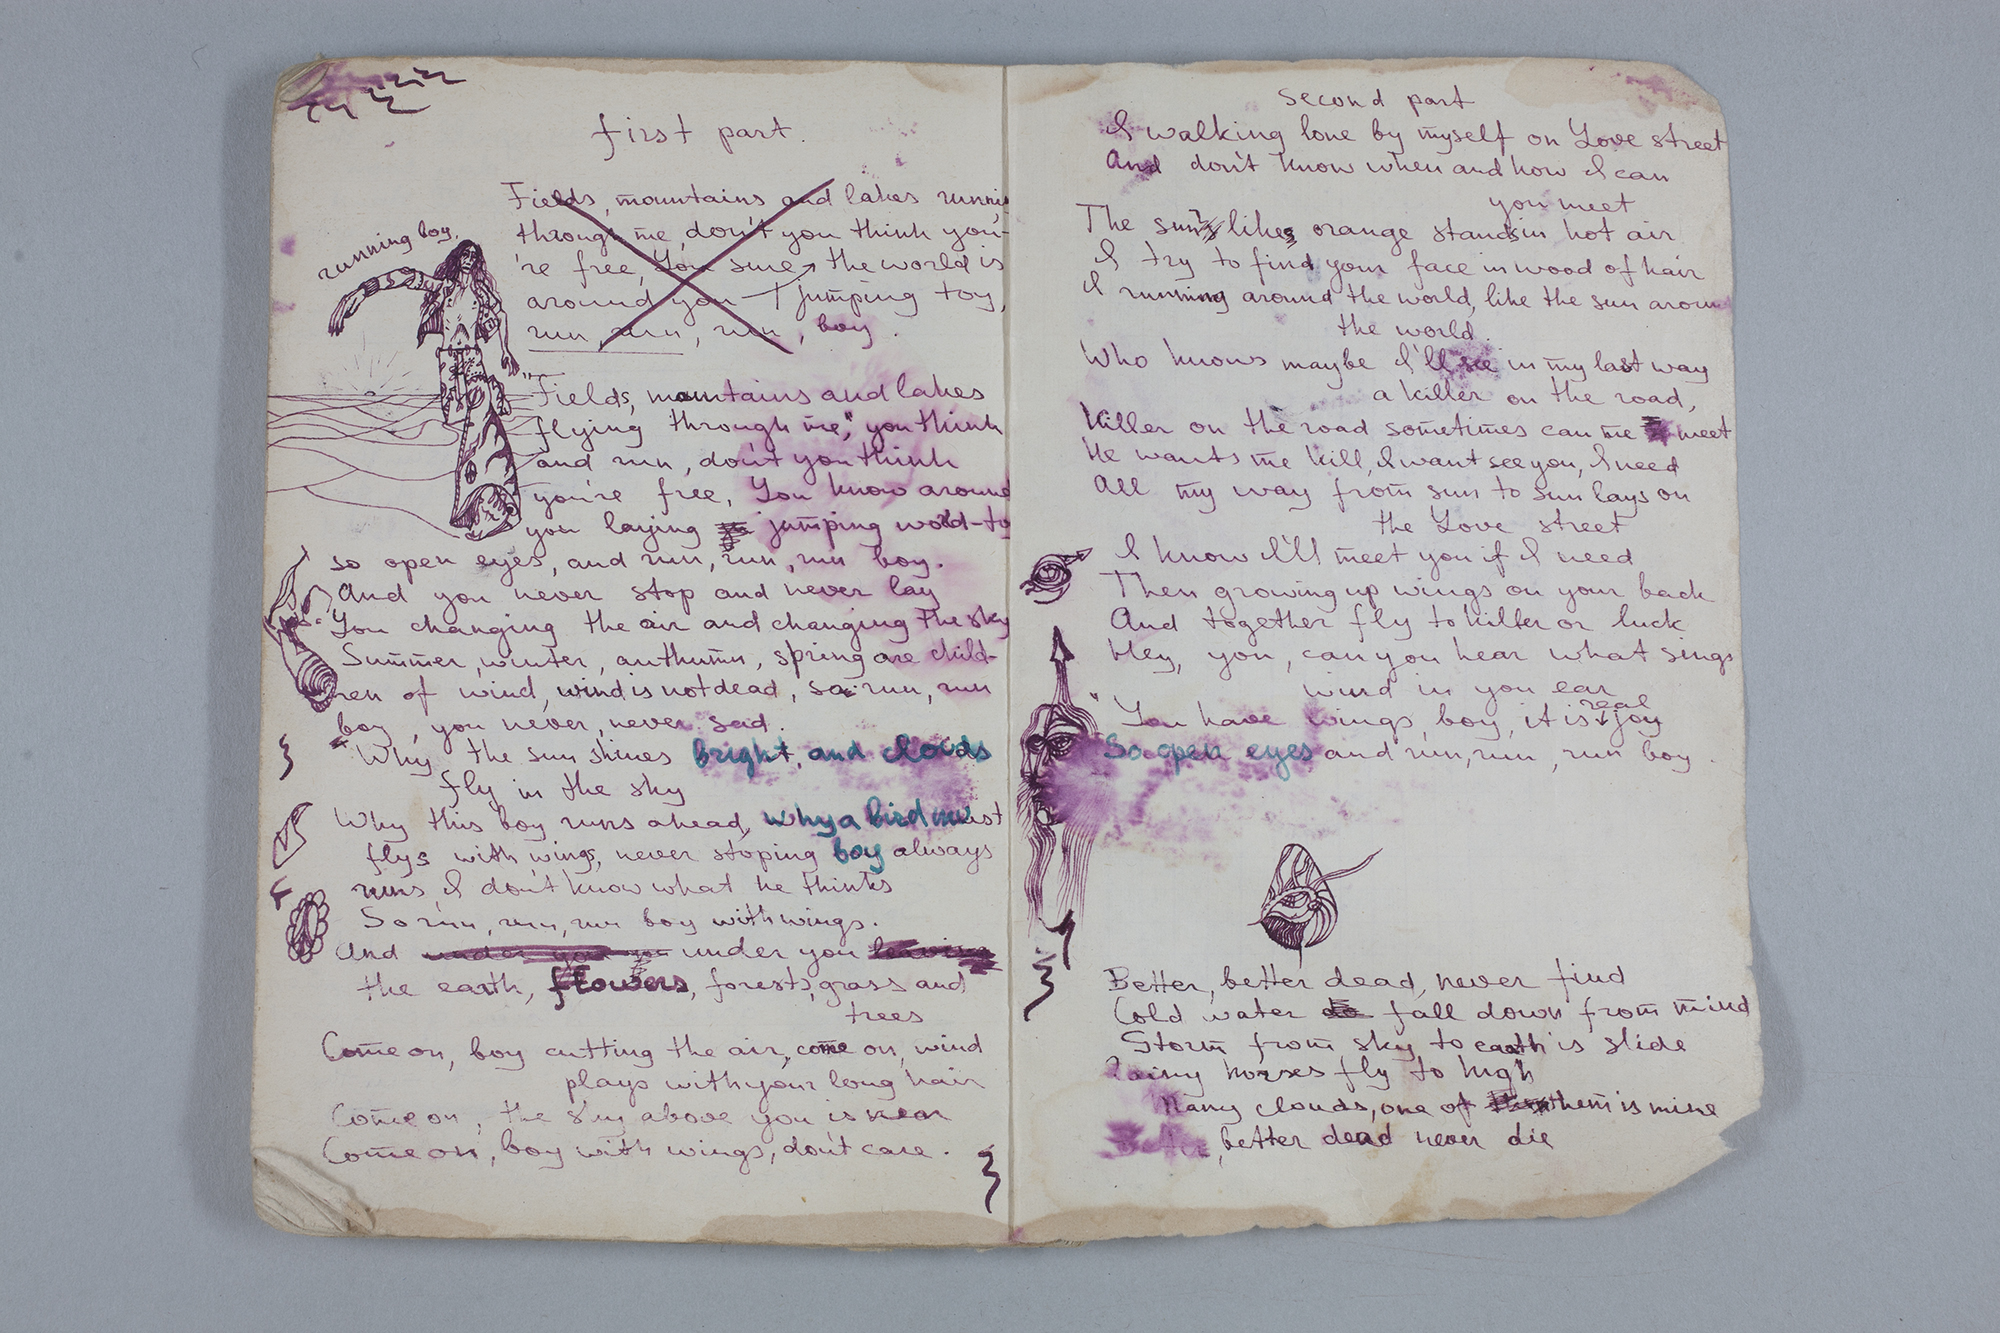 first part.
Fields, mountains and lakes runni
through me, don't you think you-
're free, You sure the world is
around you jumping toy,
run, run, run, boy.
running boy.
"Fields, mountains and lakes
flying through me," you think
and run, don't you think
you're free, You know around
you laying jumping world-to
so open eyes, and run, run, run boy.
And you never stop and never lay
You changing the air and changing the sky
Summer, winter, authumn, spring are child-
ren of wind, wind is not dead, so run, run
boy, you never, never sad.
"Why the sun shines bright, and clouds
fly in the sky
Why this boy runs ahead, why a bird must
flys with wings, never stoping boy always
runs, I don't know what he thinks
So run, run, run boy with wings.
And under you under you leaving
the earth, flowers, forests, grass and
trees
Come on, boy cutting the air, come on, wind
plays with your long hair
Come on, the sky above you is near
Come on, boy with wings, don't care.
second part
I walking lone by myself on Love street
And don't know when and how I can
you meet
The sun likes orange stands in hot air
I try to find your face in wood of hair
I running around the world, like the sun aroun
the world.
Who knows maybe I'll see in my last way
a killer on the road,
Killer on the road sometimes can me meet
He wants me kill, I want see you, I need
All my way from sun to sun lays on
the Love street
I know I'll meet you if I need
Then growing up wings on your back
And together fly to killer or luck
Hey, you, can you hear what sings
wind in you ear
"You have wings, boy, it is real joy
So open eyes and run, run, run boy.
Better, better dead, never find
Cold water do fall down from mind
Storm from sky to earth is slide
Rainy horses fly to high
Many clouds, one of them is mine
Better, better dead never die